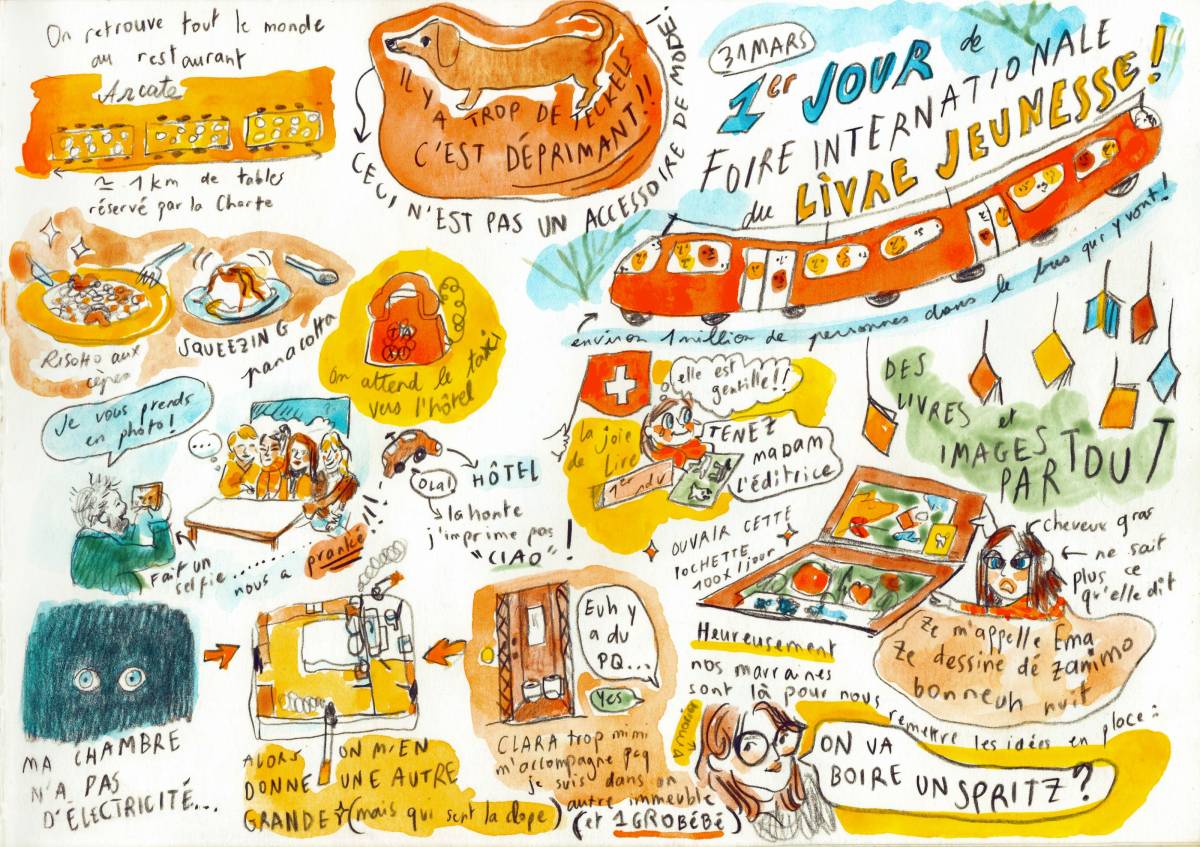 On retrouve tout le monde
au restaurant
Arcate
≃ 1 km de tables
réservé par la Charte
IL Y
A TROP DE TECKELS
C'EST DÉPRIMANT!!
CECI N'EST PAS UN ACCESSOIRE DE MODE!
31 MARS
1er JOUR de
FOIRE INTERNATIONALE
du LIVRE JEUNESSE!
environ 1 million de personnes dans le bus qui y vont!
Risotto aux
cèpes
SQUEEZING
panacotta
On attend le taxi
vers l'hôtel
Je vous prends
en photo!
...
Fait un
selfie..........
nous a pranké
OLA!
HÔTEL
la honte
j'imprime pas
"CIAO"!
elle est
gentille!!
la joie
de Lire
1er rdv
TENEZ
MADAM
L'éditrice
OUVRIR CETTE
POCHETTE
100x/jour
DES
LIVRES et
IMAGES
PARTOUT
cheveux gras
ne sait
plus ce
qu'elle dit
Ze m'appelle Ema
Ze dessine dé zanimo
bonneuh nuit
MA CHAMBRE
N'A PAS
D'ÉLECTRICITÉ...
ALORS ON M'EN
DONNE UNE AUTRE
GRANDE (mais qui sent la clope)
Euh y
a du
PQ...
Yes
CLARA trop mimi
m'accompagne pcq
je suis dans un
autre immeuble
(et 1 GROBÉBÉ)
Heureusement
nos marraines
sont là pour nous
remettre les idées en place:
ON VA
BOIRE UN SPRITZ?